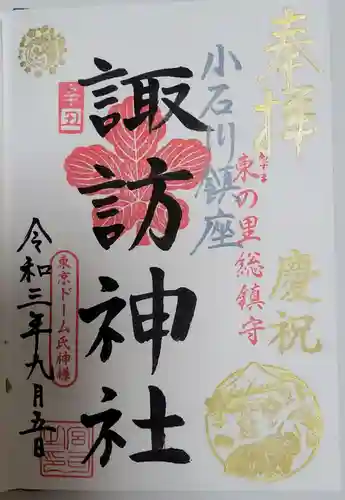 奉拝
慶祝
東の里総鎮守
小石川鎮座
諏訪神社
辛丑
東京ドーム氏神様
令和三年九月五日